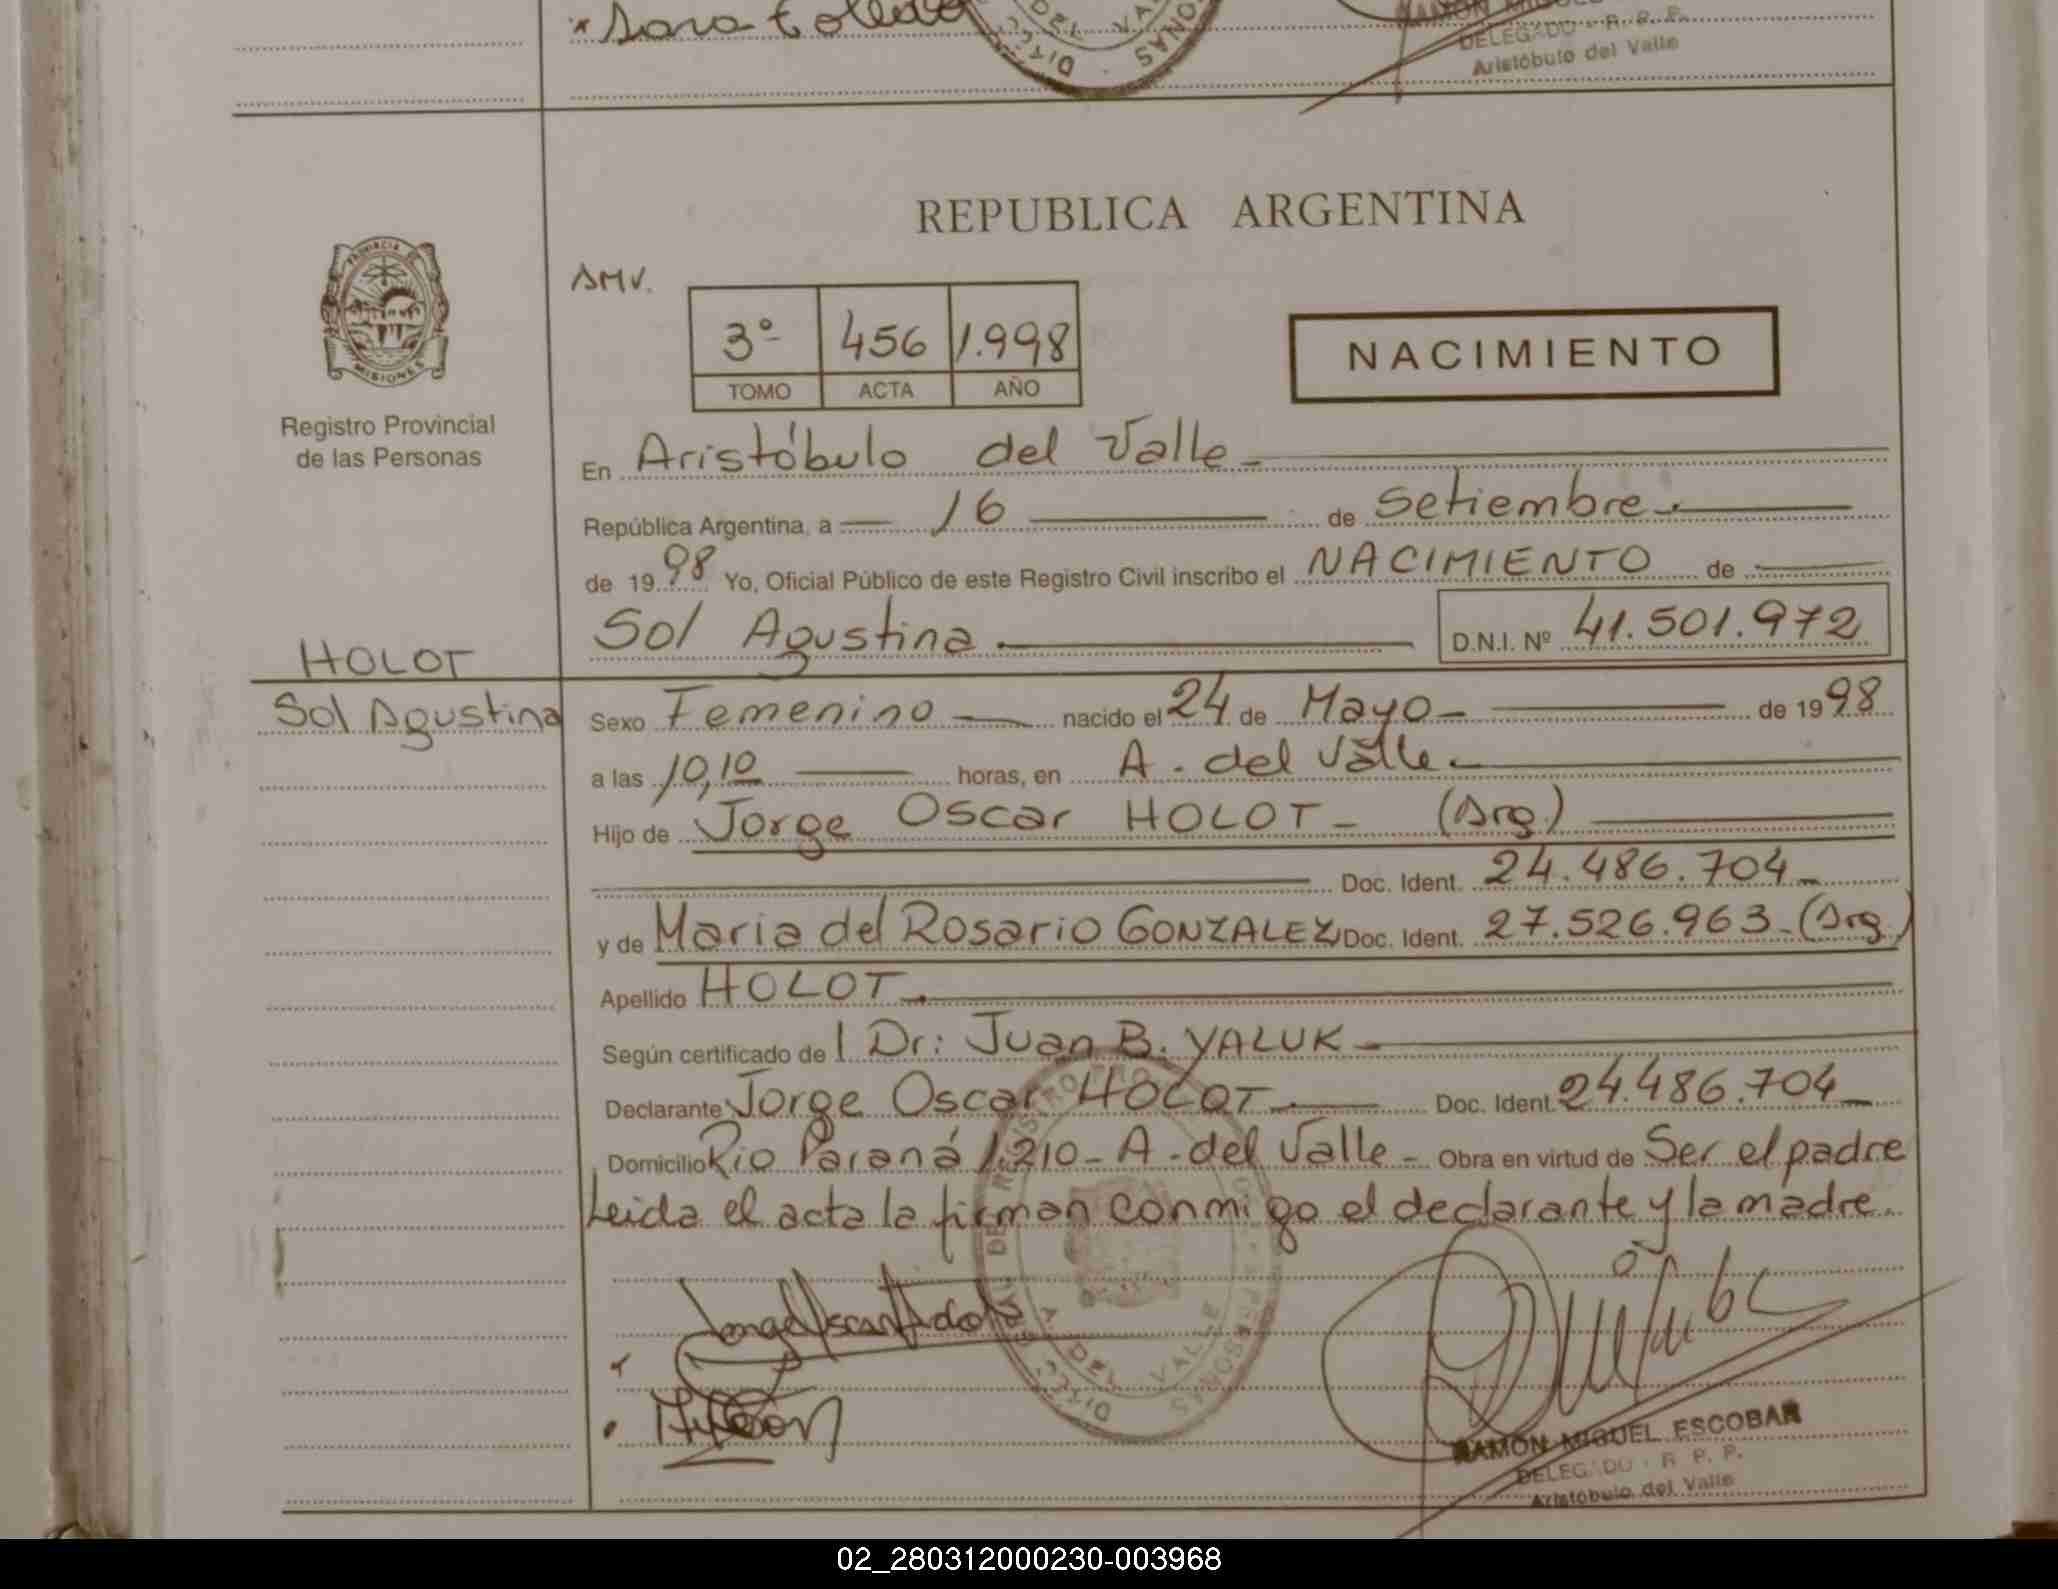 DELEGADO - R. P. P.
Aristóbulo del Valle
REPUBLICA ARGENTINA
SMV.
3º 456 1.998
TOMO ACTA AÑO
NACIMIENTO
PROVINCIA DE
MISIONES
Registro Provincial
de las Personas
En Aristóbulo del Valle
República Argentina, a 16 de Setiembre
de 1998 Yo, Oficial Público de este Registro Civil inscribo el NACIMIENTO de
Sol Agustina D.N.I. Nº 41.501.972
HOLOT
Sol Agustina
Sexo Femenino nacido el 24 de Mayo de 1998
a las 10,10 horas, en A. del Valle
Hijo de Jorge Oscar HOLOT (Arg)
Doc. Ident. 24.486.704
y de Maria del Rosario GONZALEZ Doc. Ident. 27.526.963 (Arg)
Apellido HOLOT
Según certificado de l Dr: Juan B. YALUK
Declarante Jorge Oscar HOLOT Doc. Ident. 24.486.704
Domicilio Rio Paraná 1.210 - A. del Valle - Obra en virtud de Ser el padre
Leida el acta la firman conmigo el declarante y la madre
DEL VALLE
RAMON MIGUEL ESCOBAR
DELEGADO - R. P. P.
Aristóbulo del Valle
02_280312000230-003968